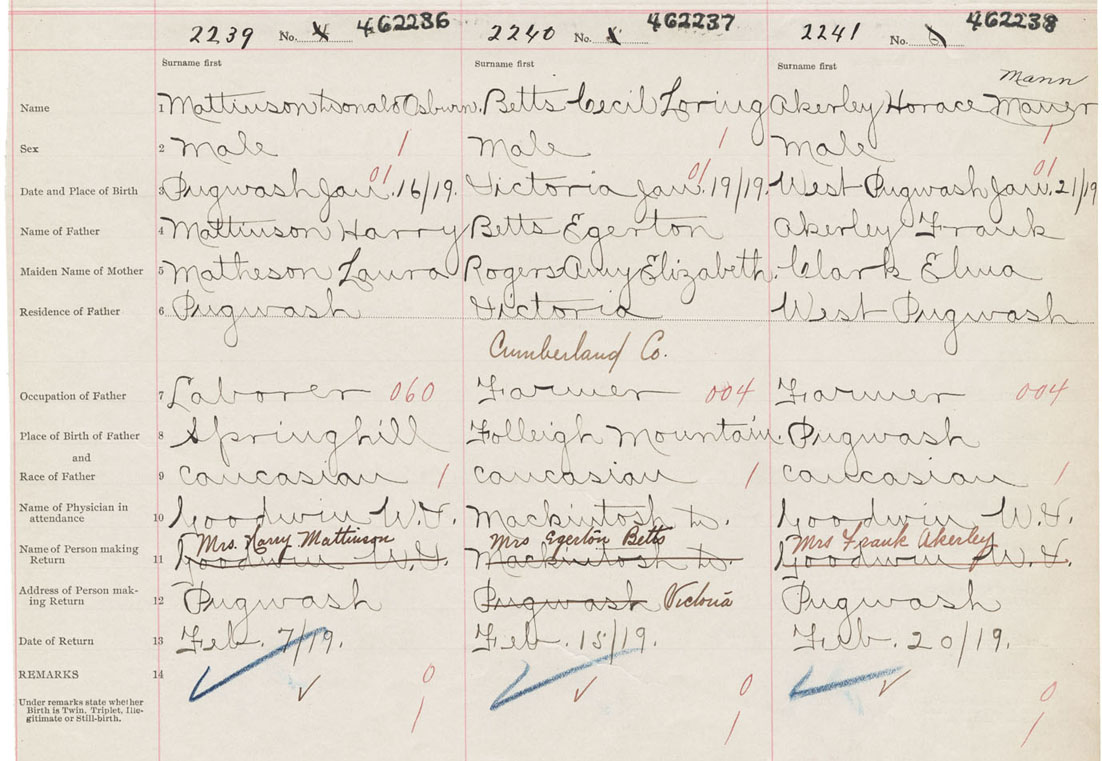 2239 No. 4 462236 2240 No. 462237 2241 No. 6 462238
Surname first Surname first Surname first
Mann
Name 1 Mattinson Donald Osburn. Betts Cecil Loring Akerley Horace Maner
Sex 2 Male 1 Male 1 Male 1
01 01 01
Date and Place of Birth 3 Pugwash Jan. 16/19. Victoria Jan. 19/19. West Pugwash Jan. 21/19
Name of Father 4 Mattinson Harry Betts Egerton Akerley Frank
Maiden Name of Mother 5 Matheson Laura Rogers Amy Elizabeth. Clark Elma
Residence of Father 6 Pugwash Victoria West Pugwash
Cumberland Co.
Occupation of Father 7 Laborer 060 Farmer 004 Farmer 004
Place of Birth of Father 8 Springhill Folleigh Mountain. Pugwash
and
Race of Father 9 Caucasian 1 Caucasian 1 Caucasian 1
Name of Physician in
attendance 10 Goodwin W. Mackintosh Goodwin W.
Mrs. Harry Mattinson Mrs Egerton Betts Mrs Frank Akerley
Name of Person making
Return 11 Goodwin W. Mackintosh Goodwin W.
Address of Person mak-
ing Return 12 Pugwash Pugwash Victoria Pugwash
Date of Return 13 Feb. 7/19. Feb. 15/19. Feb. 20/19.
REMARKS 14 0 0 0
Under remarks state whether
Birth is Twin, Triplet, Ille-
gitimate or Still-birth. 1 1 1